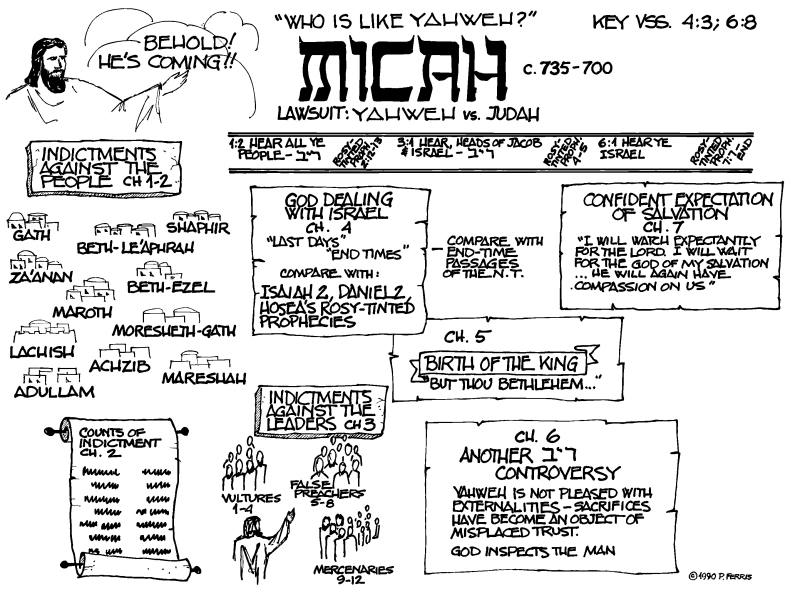 "WHO IS LIKE YAHWEH?"
KEY VSS. 4:3; 6:8
BEHOLD!
HE'S COMING!!
MICAH
C. 735-700
LAWSUIT: YAHWEH VS. JUDAH
1:2 HEAR ALL YE
PEOPLE – ריב
ROSY-
TINTED
PROPH.
2:12-13
3:1 HEAR, HEADS OF JACOB
& ISRAEL – ריב
ROSY-
TINTED
PROPH.
4-5
6:1 HEAR YE
ISRAEL
ROSY-
TINTED
PROPH.
7:7-
END
INDICTMENTS
AGAINST THE
PEOPLE CH 1-2
GATH
BETH-LE'APHRAH
SHAPHIR
ZA'ANAN
BETH-EZEL
MAROTH
MORESHETH-GATH
LACHISH
ACHZIB
MARESHAH
ADULLAM
GOD DEALING
WITH ISRAEL
CH. 4
"LAST DAYS"
"END TIMES"
COMPARE WITH:
ISAIAH 2, DANIEL 2,
HOSEA'S ROSY-TINTED
PROPHECIES
– COMPARE WITH
END-TIME
PASSAGES
OF THE N.T.
CONFIDENT EXPECTATION
OF SALVATION
CH. 7
"I WILL WATCH EXPECTANTLY
FOR THE LORD. I WILL WAIT
FOR THE GOD OF MY SALVATION
... HE WILL AGAIN HAVE
COMPASSION ON US"
CH. 5
BIRTH OF THE KING
"BUT THOU BETHLEHEM..."
COUNTS OF
INDICTMENT
CH. 2
INDICTMENTS
AGAINST THE
LEADERS CH 3
VULTURES
1-4
FALSE
PREACHERS
5-8
MERCENARIES
9-12
CH. 6
ANOTHER ריב
CONTROVERSY
YAHWEH IS NOT PLEASED WITH
EXTERNALITIES – SACRIFICES
HAVE BECOME AN OBJECT OF
MISPLACED TRUST.
GOD INSPECTS THE MAN
©1990 P. FERRIS